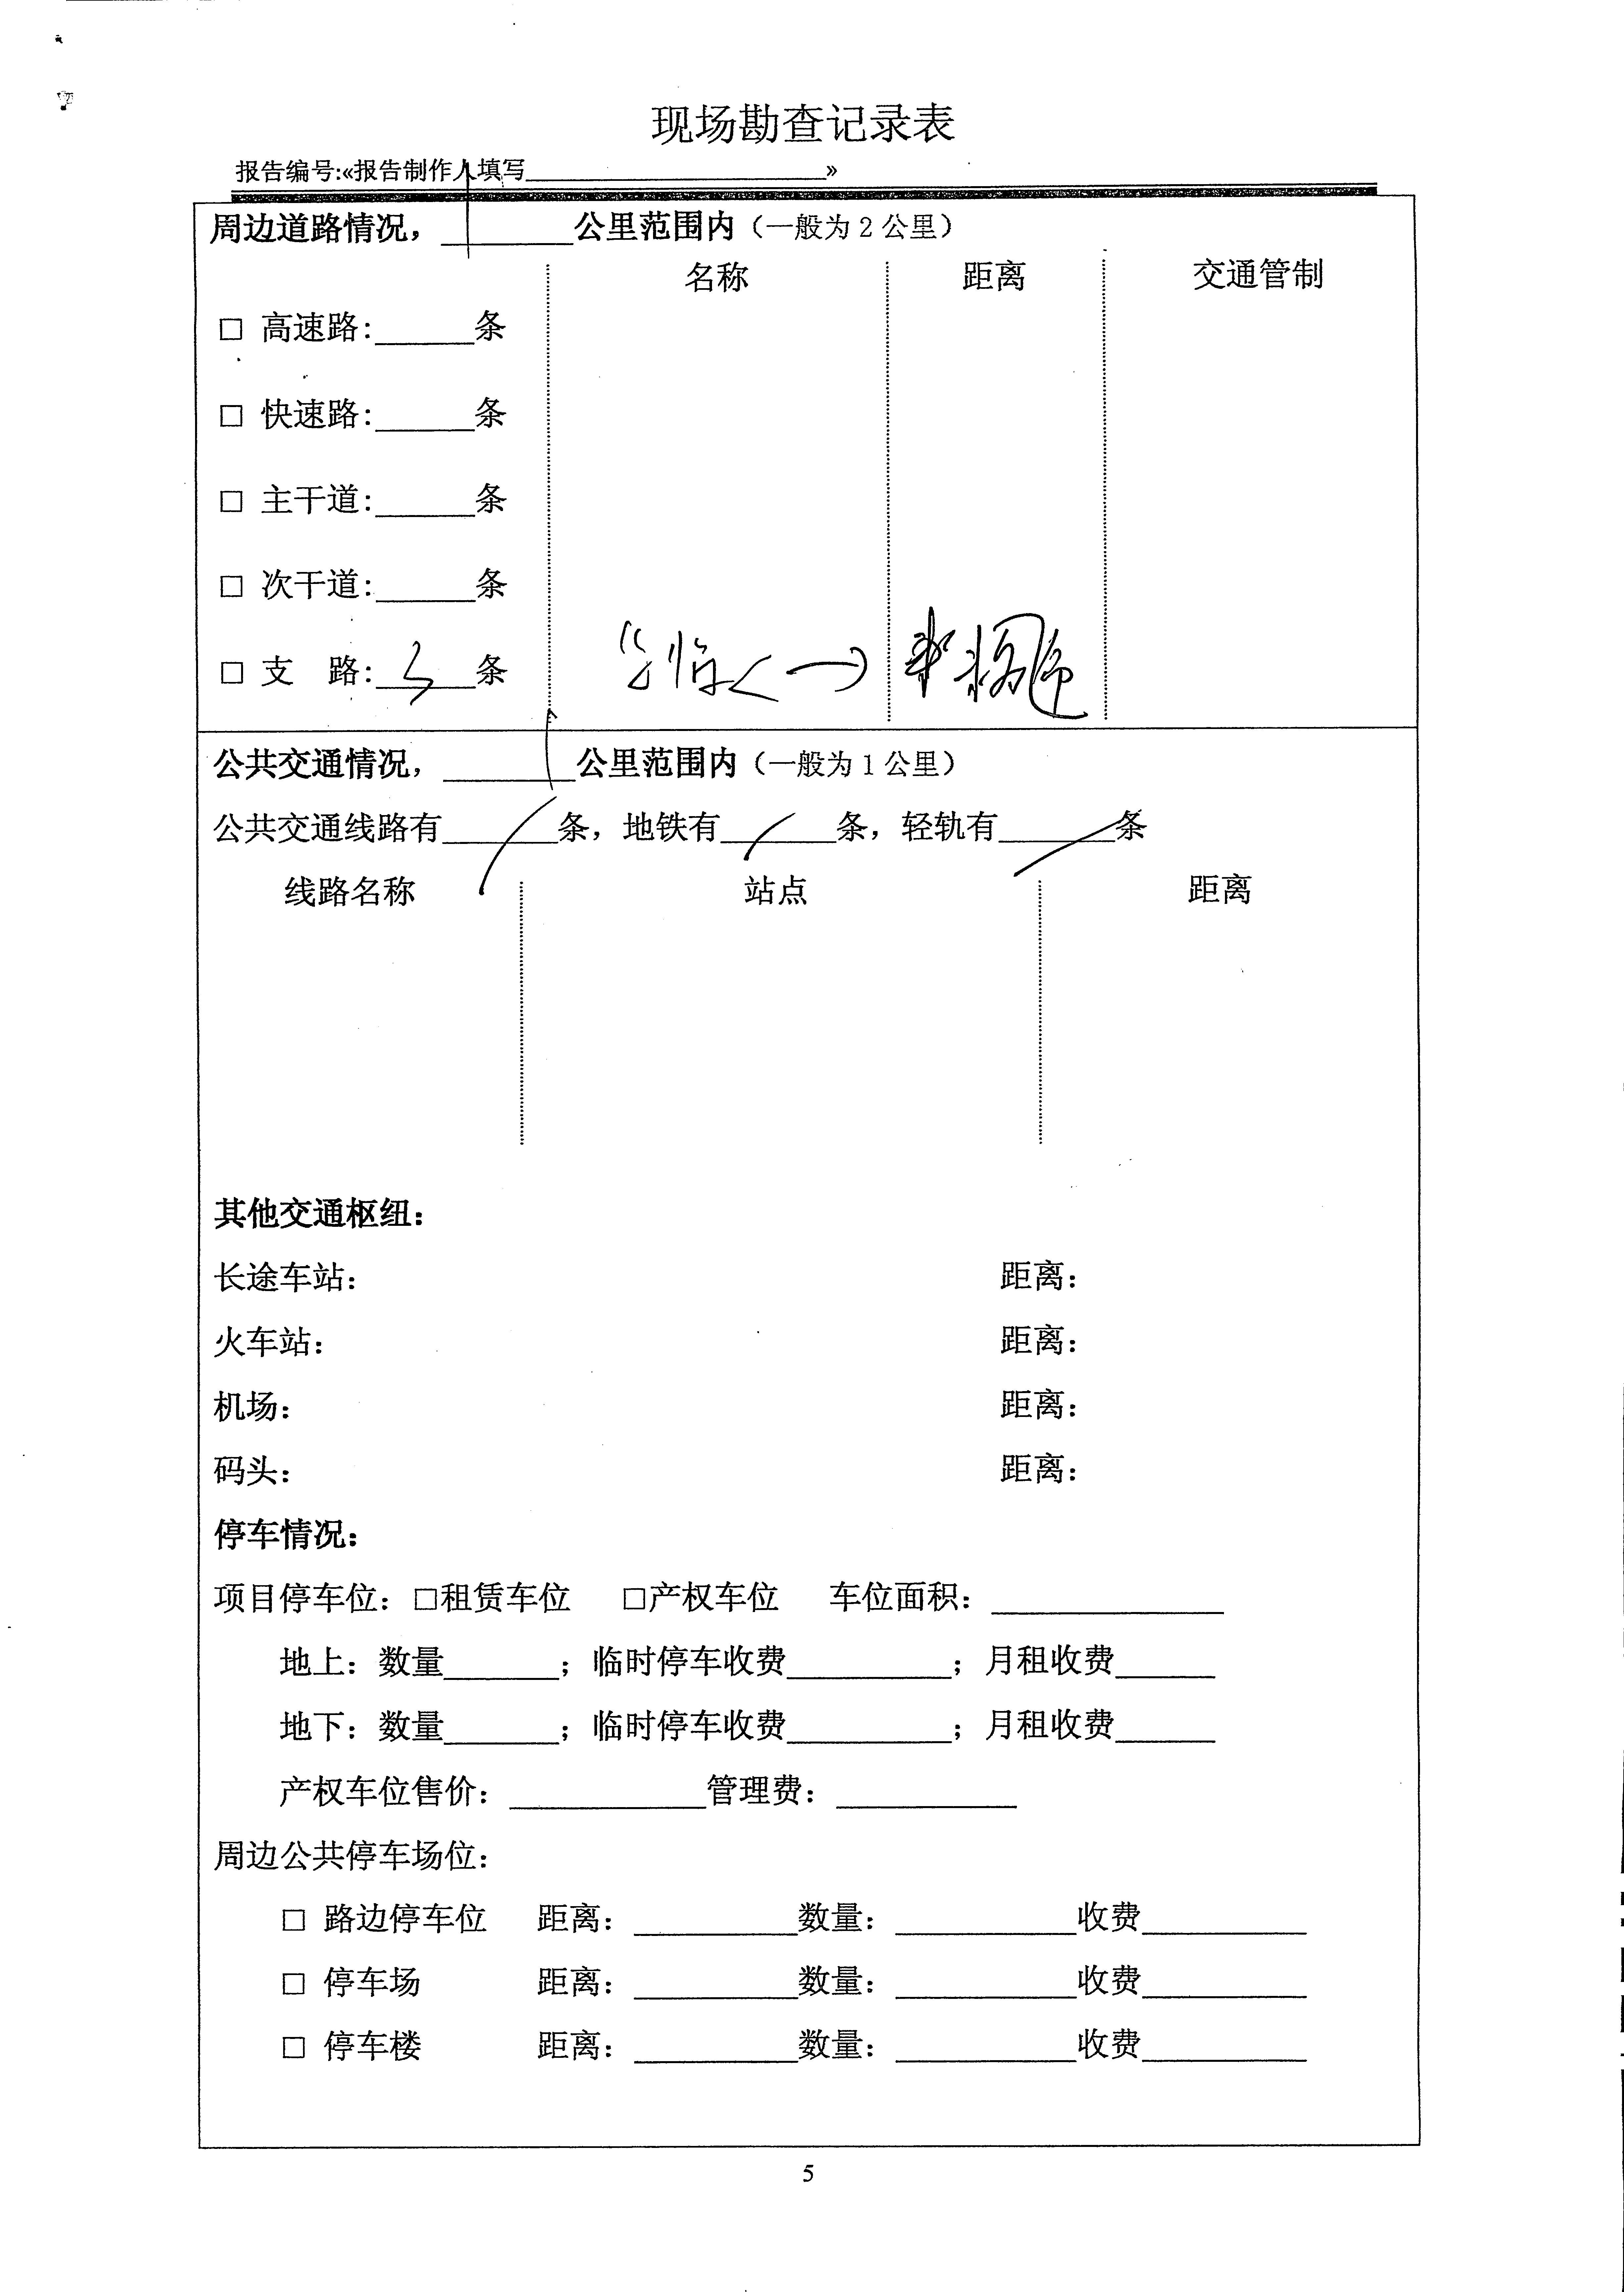 现场勘查记录表
报告编号:«报告制作人填写____________________»
周边道路情况，________公里范围内（一般为 2 公里）
名称 距离 交通管制
□ 高速路:______条
□ 快速路:______条
□ 主干道:______条
□ 次干道:______条
□ 支 路:______条
公共交通情况，________公里范围内（一般为 1 公里）
公共交通线路有_______条，地铁有_______条，轻轨有_______条
线路名称 站点 距离
其他交通枢纽：
长途车站： 距离：
火车站： 距离：
机场： 距离：
码头： 距离：
停车情况：
项目停车位：□租赁车位 □产权车位 车位面积：______________
地上：数量_______；临时停车收费__________；月租收费______
地下：数量_______；临时停车收费__________；月租收费______
产权车位售价：____________管理费：___________
周边公共停车场位：
□ 路边停车位 距离：__________数量：___________收费__________
□ 停车场 距离：__________数量：___________收费__________
□ 停车楼 距离：__________数量：___________收费__________
5